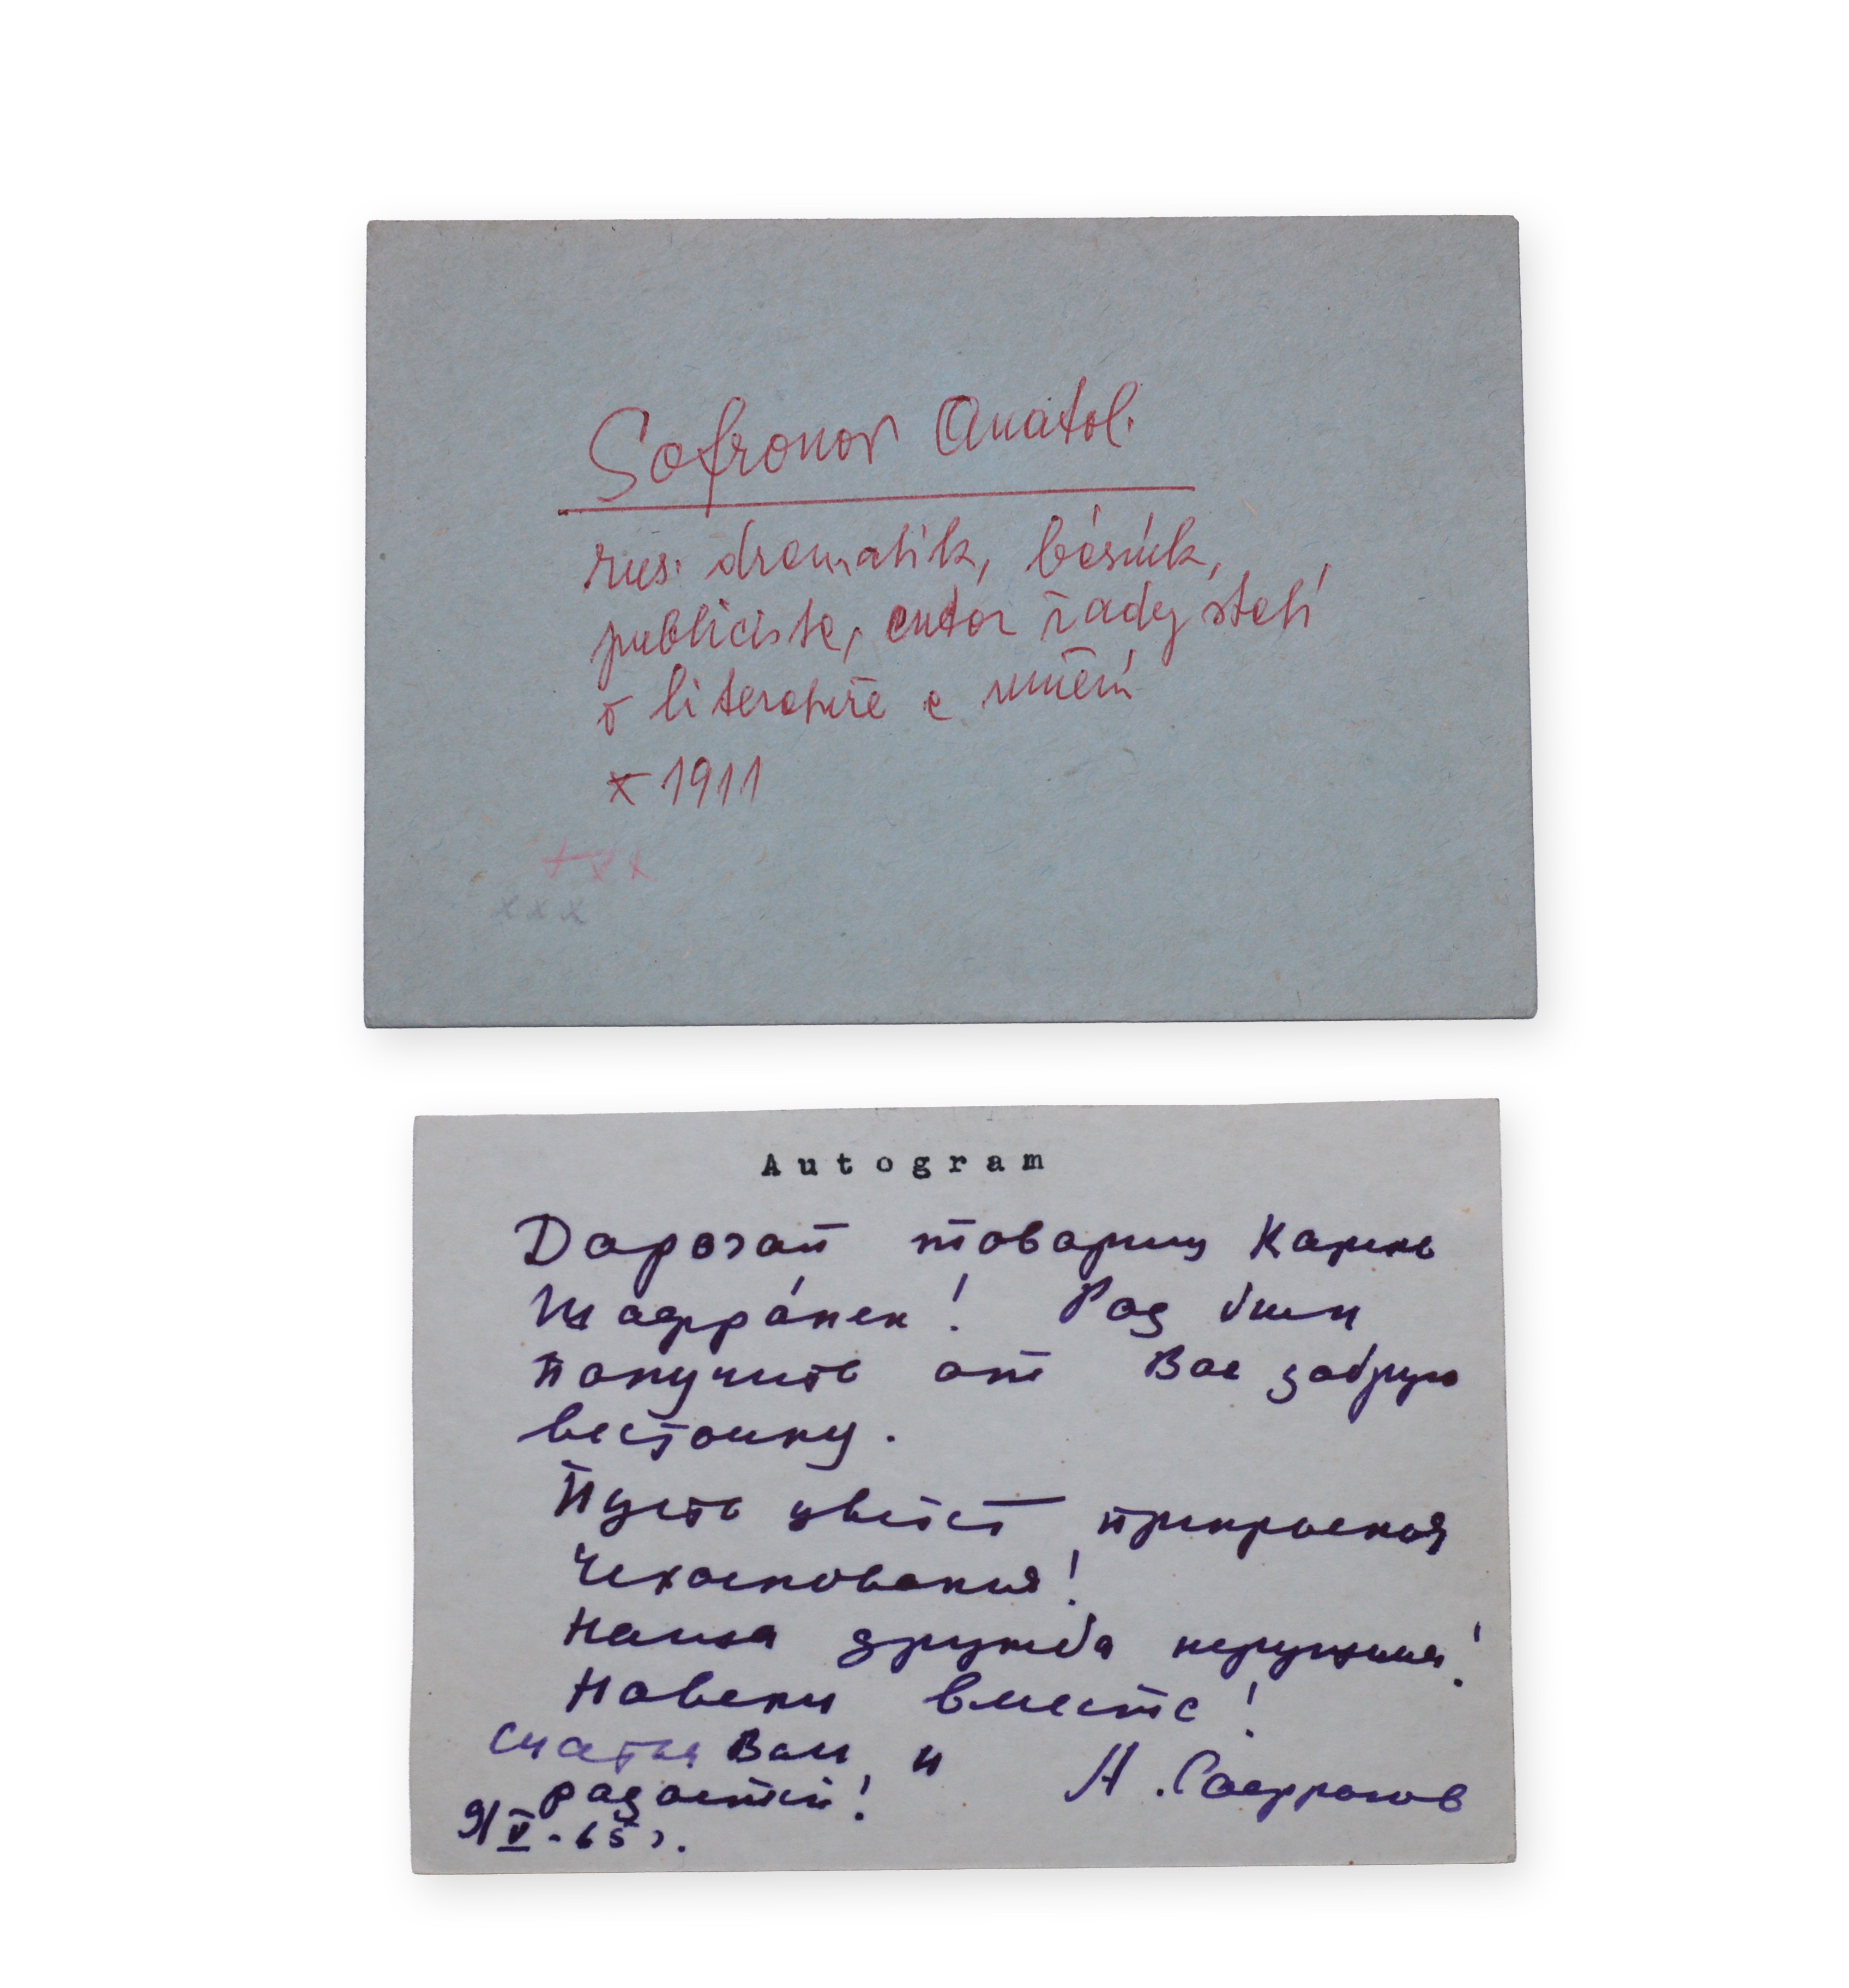 Sofronov Anatol.
rus. dramatik, básník,
publicista, autor řady statí
o literatuře a umění
x 1911
+ x x
x x x
Autogram
Дорогой товарищ Карель
Шафрánек! Рад был
получить от Вас добрую
весточку.
Пусть цветет прекрасная
Чехословакия!
Наша дружба нерушима!
Навеки вместе!
Счастья Вам и
радостей!
А. Софронов
9/V-65 г.